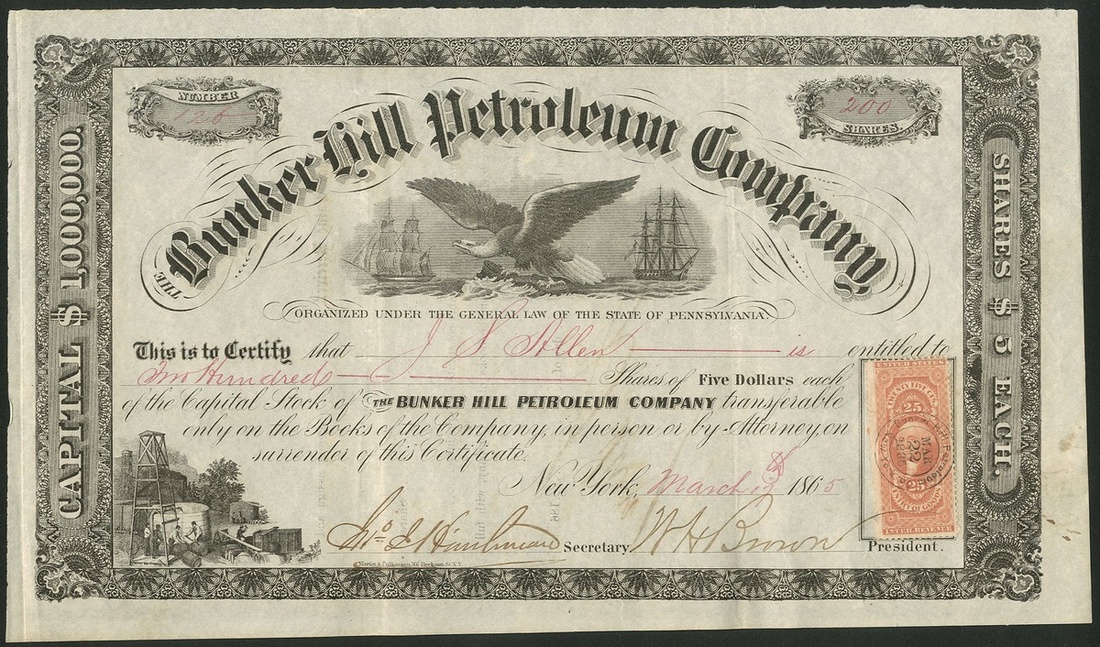 NUMBER
126
200
SHARES.
THE Bunker Hill Petroleum Company
CAPITAL $ 1,000,000.
SHARES $ 5 EACH.
ORGANIZED UNDER THE GENERAL LAW OF THE STATE OF PENNSYLVANIA.
This is to Certify that J S Allen is entitled to
Two Hundred Shares of Five Dollars each
of the Capital Stock of THE BUNKER HILL PETROLEUM COMPANY transferable
only on the Books of the Company, in person or by Attorney, on
surrender of this Certificate.
New York, March 1865
Secretary. W H Brown President.
UNITED STATES
25
MAR
22
25
INTER. REVENUE